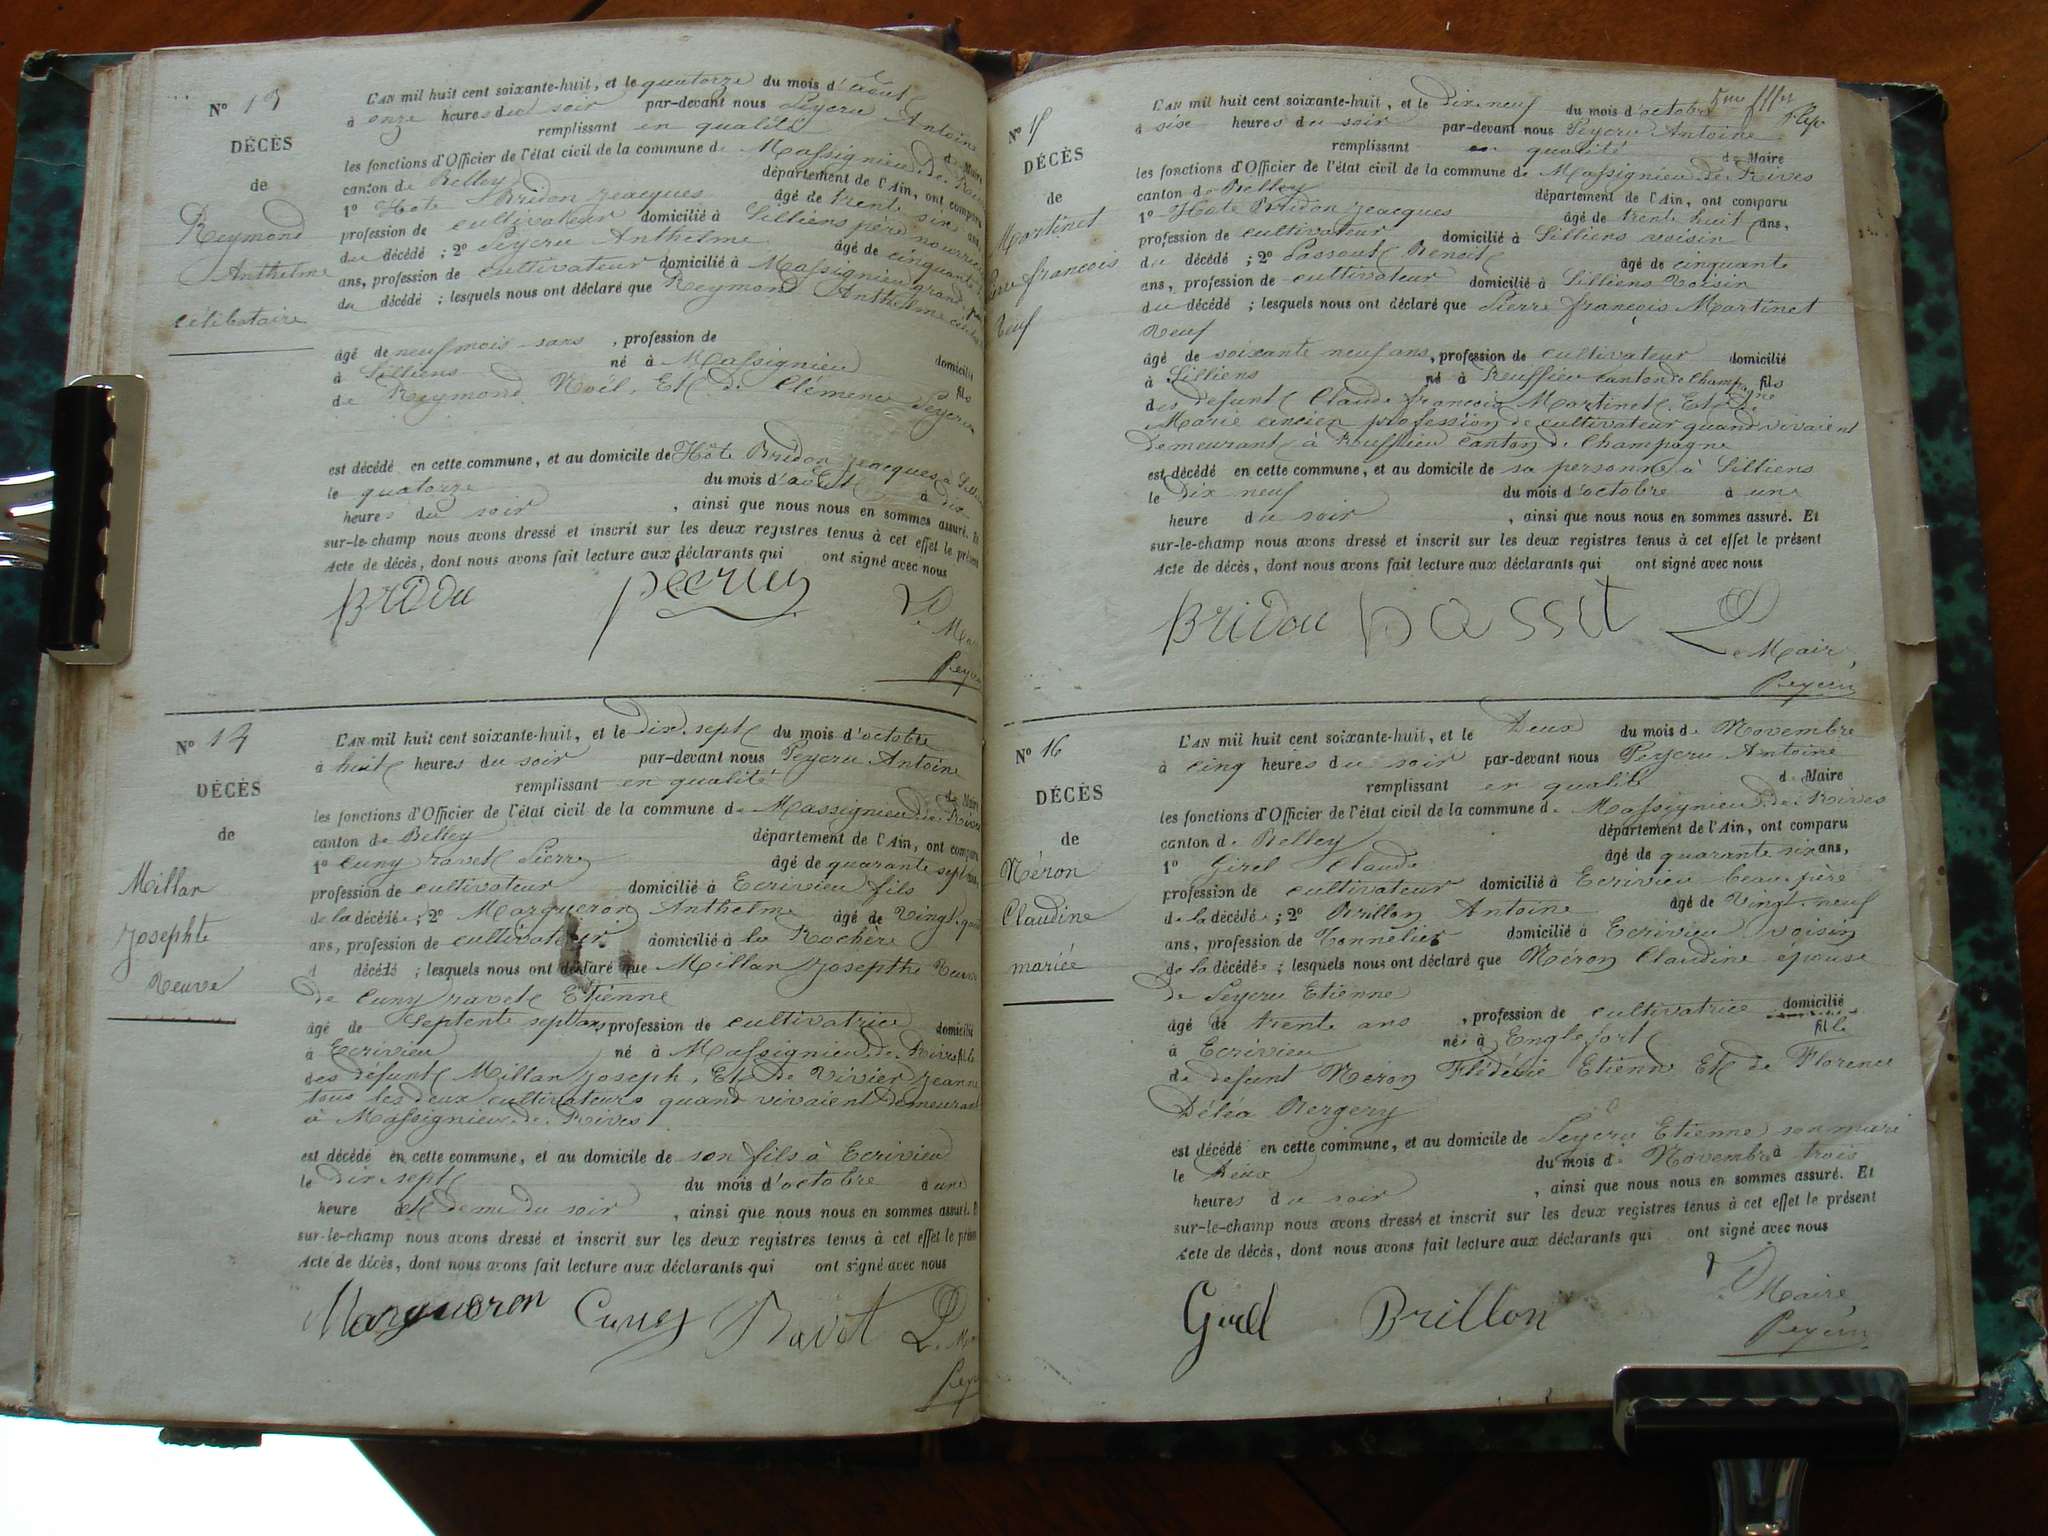 N° 13
DÉCÈS
de
Reymond
Anthelme
célibataire
L'AN mil huit cent soixante-huit, et le quatorze du mois d'Août
à onze heures du soir par-devant nous Peyeru Antoine
remplissant en qualité de Maire
les fonctions d'Officier de l'état civil de la commune de Massignieu de Rives
canton de Belley département de l'Ain, ont comparu
1° Hôte Bridon Jeacques âgé de trente six ans,
profession de cultivateur domicilié à Lilliens père nourricier
du décédé ; 2° Peyeru Anthelme âgé de cinquante
ans, profession de cultivateur domicilié à Massignieu grand père
du décédé ; lesquels nous ont déclaré que Reymond Anthelme
âgé de neuf mois sans , profession de domicilié
à Lilliens né à Massignieu fils
de Reymond Noël, Et de Clémence Peyeru
est décédé en cette commune, et au domicile de Hôte Bridon Jeacques à
le quatorze du mois d'août à dix
heures du soir , ainsi que nous nous en sommes assuré. Et
sur-le-champ nous avons dressé et inscrit sur les deux registres tenus à cet effet le présent
Acte de décès, dont nous avons fait lecture aux déclarants qui ont signé avec nous
Le
Peyeru
N° 14
DÉCÈS
de
Millan
Josephte
Veuve
L'AN mil huit cent soixante-huit, et le Dix-sept du mois d'octobre
à huit heures du soir par-devant nous Peyeru Antoine
remplissant en qualité de Maire
les fonctions d'Officier de l'état civil de la commune de Massignieu de Rives
canton de Belley département de l'Ain, ont comparu
1° Cuny ravet Pierre âgé de quarante sept ans,
profession de cultivateur domicilié à Ecrivieu fils
de la décédée ; 2° Margueron Anthelme âgé de Vingt
ans, profession de cultivateur domicilié à la Rochère
d décédé ; lesquels nous ont déclaré que Millan Josepthe Veuve
de Cuny ravet Etienne
âgé de Septente sept ans profession de cultivatrice domicilié
à Ecrivieu né à Massignieu de Rives fille
des défunt Millan Joseph, Et de Vivier Jeanne
tous les deux cultivateurs quand vivaient demeurant
à Massignieu de Rives
est décédé en cette commune, et au domicile de son fils à Ecrivieu
le Dix-sept du mois d'octobre à une
heure et demi du soir , ainsi que nous nous en sommes assuré. Et
sur-le-champ nous avons dressé et inscrit sur les deux registres tenus à cet effet le présent
Acte de décès, dont nous avons fait lecture aux déclarants qui ont signé avec nous
Margueron Cuney Ravet Le
N° 15
DÉCÈS
de
Martinet
françois
Veuf
L'AN mil huit cent soixante-huit, et le Dix-neuf du mois d'octobre
à sise heures du soir par-devant nous Peyeru Antoine
remplissant en qualité de Maire
les fonctions d'Officier de l'état civil de la commune de Massignieu de Rives
canton de Belley département de l'Ain, ont comparu
1° Hôte Bridon Jeacques âgé de trente huit ans,
profession de cultivateur domicilié à Lilliens voisin
du décédé ; 2° Passout Benoit âgé de cinquante
ans, profession de cultivateur domicilié à Lilliens Voisin
du décédé ; lesquels nous ont déclaré que Pierre françois Martinet
Veuf
âgé de soixante neuf ans, profession de cultivateur domicilié
à Lilliens né à Reuffieu canton de Champagne fils
des défunt Claude françois Martinet Et de
Marie ancien profession de cultivateur quand vivaient
Demeurant à Reuffieu canton de Champagne
est décédé en cette commune, et au domicile de sa personne à Lilliens
le Dix neuf du mois d'octobre à une
heure du soir , ainsi que nous nous en sommes assuré. Et
sur-le-champ nous avons dressé et inscrit sur les deux registres tenus à cet effet le présent
Acte de décès, dont nous avons fait lecture aux déclarants qui ont signé avec nous
Bridon Le Maire,
Peyeru
N° 16
DÉCÈS
de
Néron
Claudine
mariée
L'AN mil huit cent soixante-huit, et le Deux du mois de Novembre
à cinq heures du soir par-devant nous Peyeru Antoine
remplissant en qualité de Maire
les fonctions d'Officier de l'état civil de la commune de Massignieu de Rives
canton de Belley département de l'Ain, ont comparu
1° Girel Claude âgé de quarante six ans,
profession de cultivateur domicilié à Ecrivieu beau père
de la décédée ; 2° Brillon Antoine âgé de Vingt-neuf
ans, profession de Tonnelier domicilié à Ecrivieu voisin
de la décédée ; lesquels nous ont déclaré que Néron Claudine épouse
de Peyeru Etienne
âgé de trente ans , profession de cultivatrice domicilié
à Ecrivieu née à Englefort fille
de defunt Neron Etienne Et de Florence
Bergery
est décédé en cette commune, et au domicile de Peyeru Etienne son mari
le Deux du mois de Novembre à trois
heures du soir , ainsi que nous nous en sommes assuré. Et
sur-le-champ nous avons dressé et inscrit sur les deux registres tenus à cet effet le présent
Acte de décès, dont nous avons fait lecture aux déclarants qui ont signé avec nous
Girel Brillon Le Maire,
Peyeru